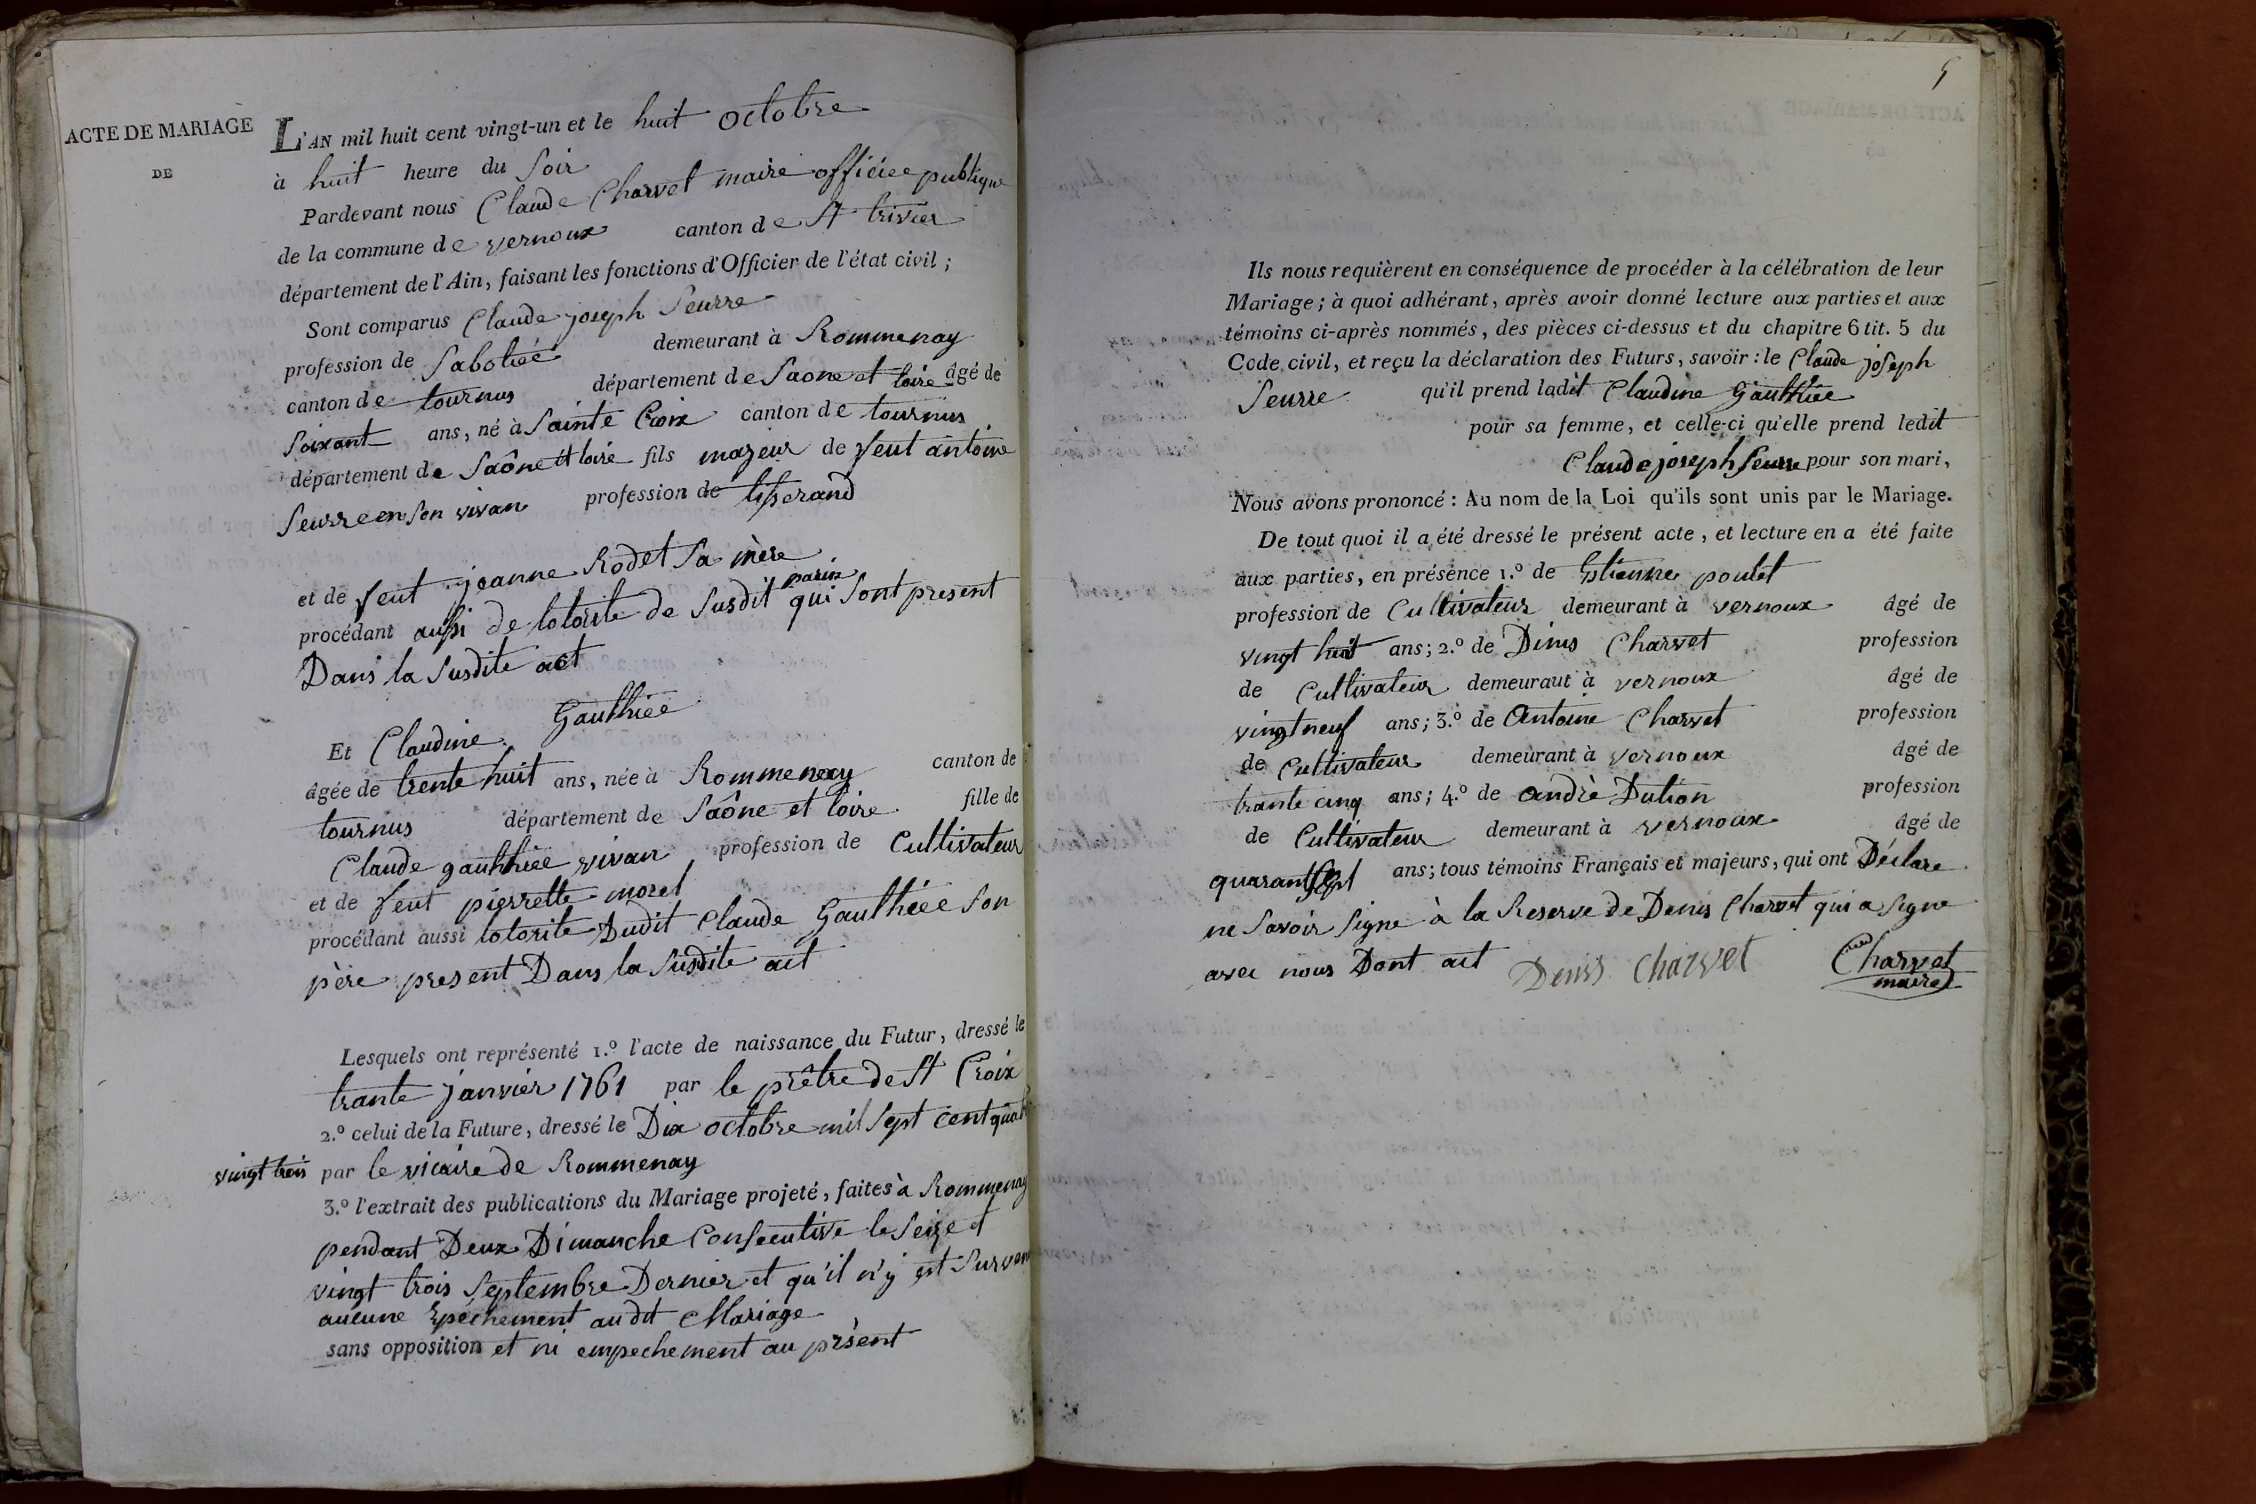 ACTE DE MARIAGE
DE
L'AN mil huit cent vingt-un et le huit octobre
à huit heure du Soir
Pardevant nous Claude Charvet maire officiee publique
de la commune de vernoux canton de St trivier
département de l'Ain, faisant les fonctions d'Officier de l'état civil ;
Sont comparus Claude joseph Seurre
profession de Sabotiée demeurant à Rommenay
canton de tournus département de Saone et loire âgé de
Soixant ans, né à Sainte Croix canton de tournus
département de Saône et loire fils majeur de feut antoine
Seurre en Son vivan profession de tisserand
et de feut jeanne Rodet Sa mère
parin
procédant aussi de lotorite de Susdit qui Sont present
Dans la Susdite act
Et Claudine Gauthiée
âgée de trente huit ans, née à Rommenay canton de
tournus département de Saône et loire fille de
Claude gauthiée vivan profession de Cultivateur
et de feut pierrette morel
procédant aussi lotorite Dudit Claude Gauthiée Son
père present Dans la Susdite act
Lesquels ont représenté 1.º l'acte de naissance du Futur, dressé le
trante janvier 1761 par le prêtre de St Croix
2.º celui de la Future, dressé le Dix octobre mil Sept cent quat
vingt trois par le vicaire de Rommenay
3.º l'extrait des publications du Mariage projeté, faites à Rommenay
pendant Deux Dimanche Consecutive le Seize et
vingt trois Septembre Dernier et qu'il n'y est Surven
aucune Epéchement audit Mariage
sans opposition et ni empechement au présent
5
Ils nous requièrent en conséquence de procéder à la célébration de leur
Mariage ; à quoi adhérant, après avoir donné lecture aux parties et aux
témoins ci-après nommés, des pièces ci-dessus et du chapitre 6 tit. 5 du
Code civil, et reçu la déclaration des Futurs, savoir : le Claude joseph
Seurre qu'il prend ladit Claudine Gauthiée
pour sa femme, et celle-ci qu'elle prend ledit
Claude joseph Seurre pour son mari,
Nous avons prononcé : Au nom de la Loi qu'ils sont unis par le Mariage.
De tout quoi il a été dressé le présent acte, et lecture en a été faite
aux parties, en présence 1.º de Estienne poulet
profession de Cultivateur demeurant à vernoux âgé de
vingt huit ans ; 2.º de Dinis Charvet profession
de Cultivateur demeuraut à vernoux âgé de
vingt neuf ans ; 3.º de Antoine Charvet profession
de Cultivateur demeurant à vernoux âgé de
trante cinq ans ; 4.º de andrè Dution profession
de Cultivateur demeurant à vernoux âgé de
quarant Sept ans ; tous témoins Français et majeurs, qui ont Déclare
ne Savoir Signe à la Reserve de Denis Charvet qui a Signe
avec nous Dont act Denis Charvet Charvet
maire